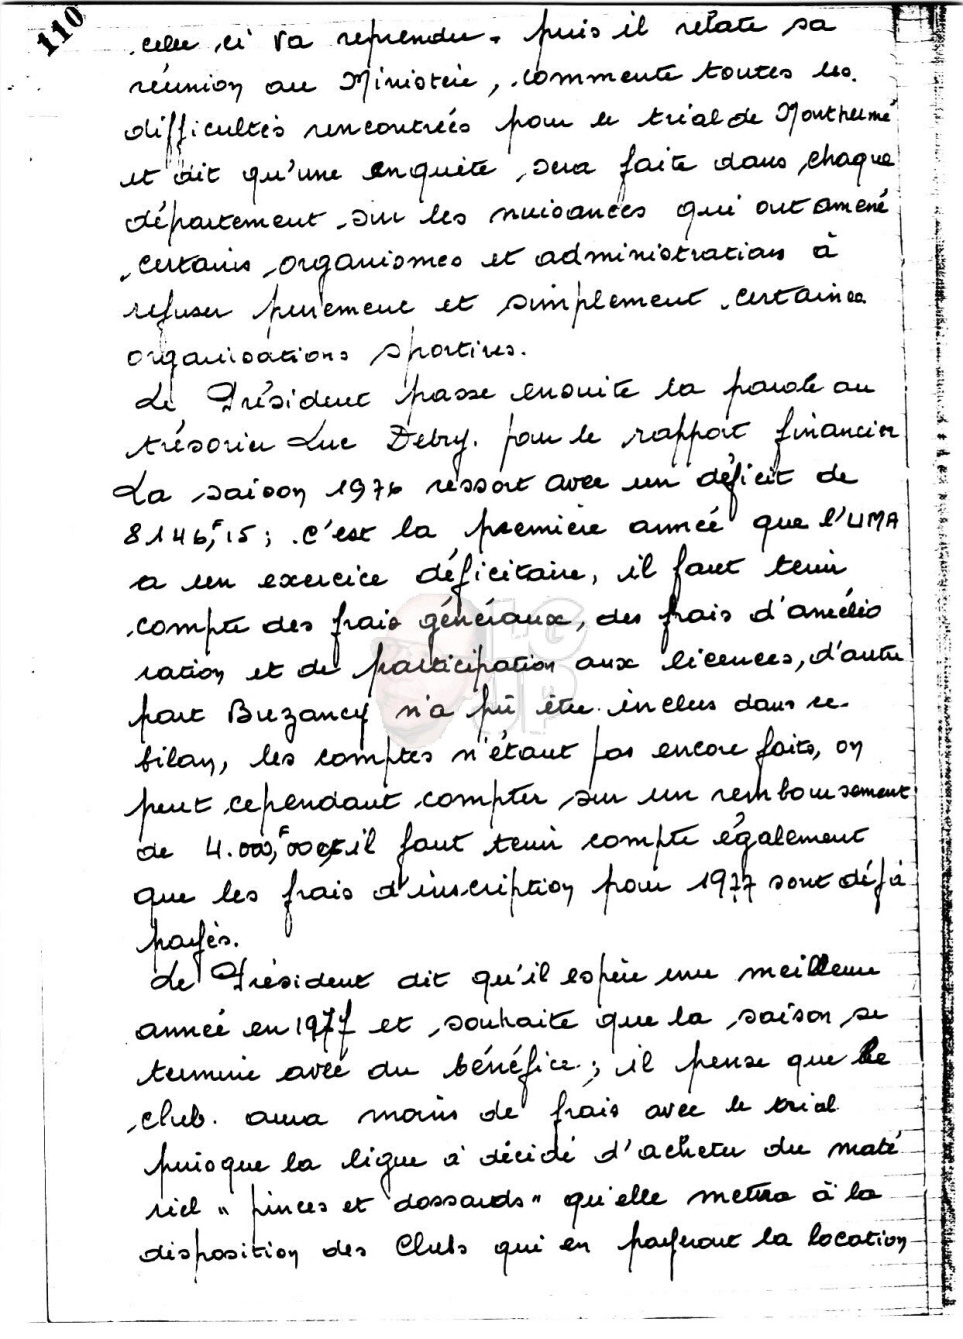 110
celle ci va reprendre. puis il relate sa
réunion au Ministère, commente toutes les
difficultés rencontrées pour le trial de Monthermé
et dit qu'une enquête sera faite dans chaque
département sur les nuisances qui ont amené
certains organismes et administrations à
refuser purement et simplement certaines
organisations sportives.
Le Président passe ensuite la parole au
trésorier Luc Debry. pour le rapport financier
La saison 1976 ressort avec un déficit de
8146,F15 ; c'est la première année que l'UMA
a un exercice déficitaire, il faut tenir
compte des frais généraux, des frais d'amélio
ration et de participation aux licences, d'autre
part Buzancy n'a pû être inclus dans ce
bilan, les comptes n'étant pas encore faits, on
peut cependant compter sur un remboursement
de 4.000,F00 il faut tenir compte également
que les frais d'inscription pour 1977 sont déjà
payés.
Le Président dit qu'il espère une meilleure
année en 1977 et souhaite que la saison se
termine avec du bénéfice ; il pense que le
club. aura moins de frais avec le trial
puisque la ligue à décidé d'acheter du maté
riel "pinces et dossards" qu'elle mettra à la
disposition des Clubs qui en payeront la location
LG
JP